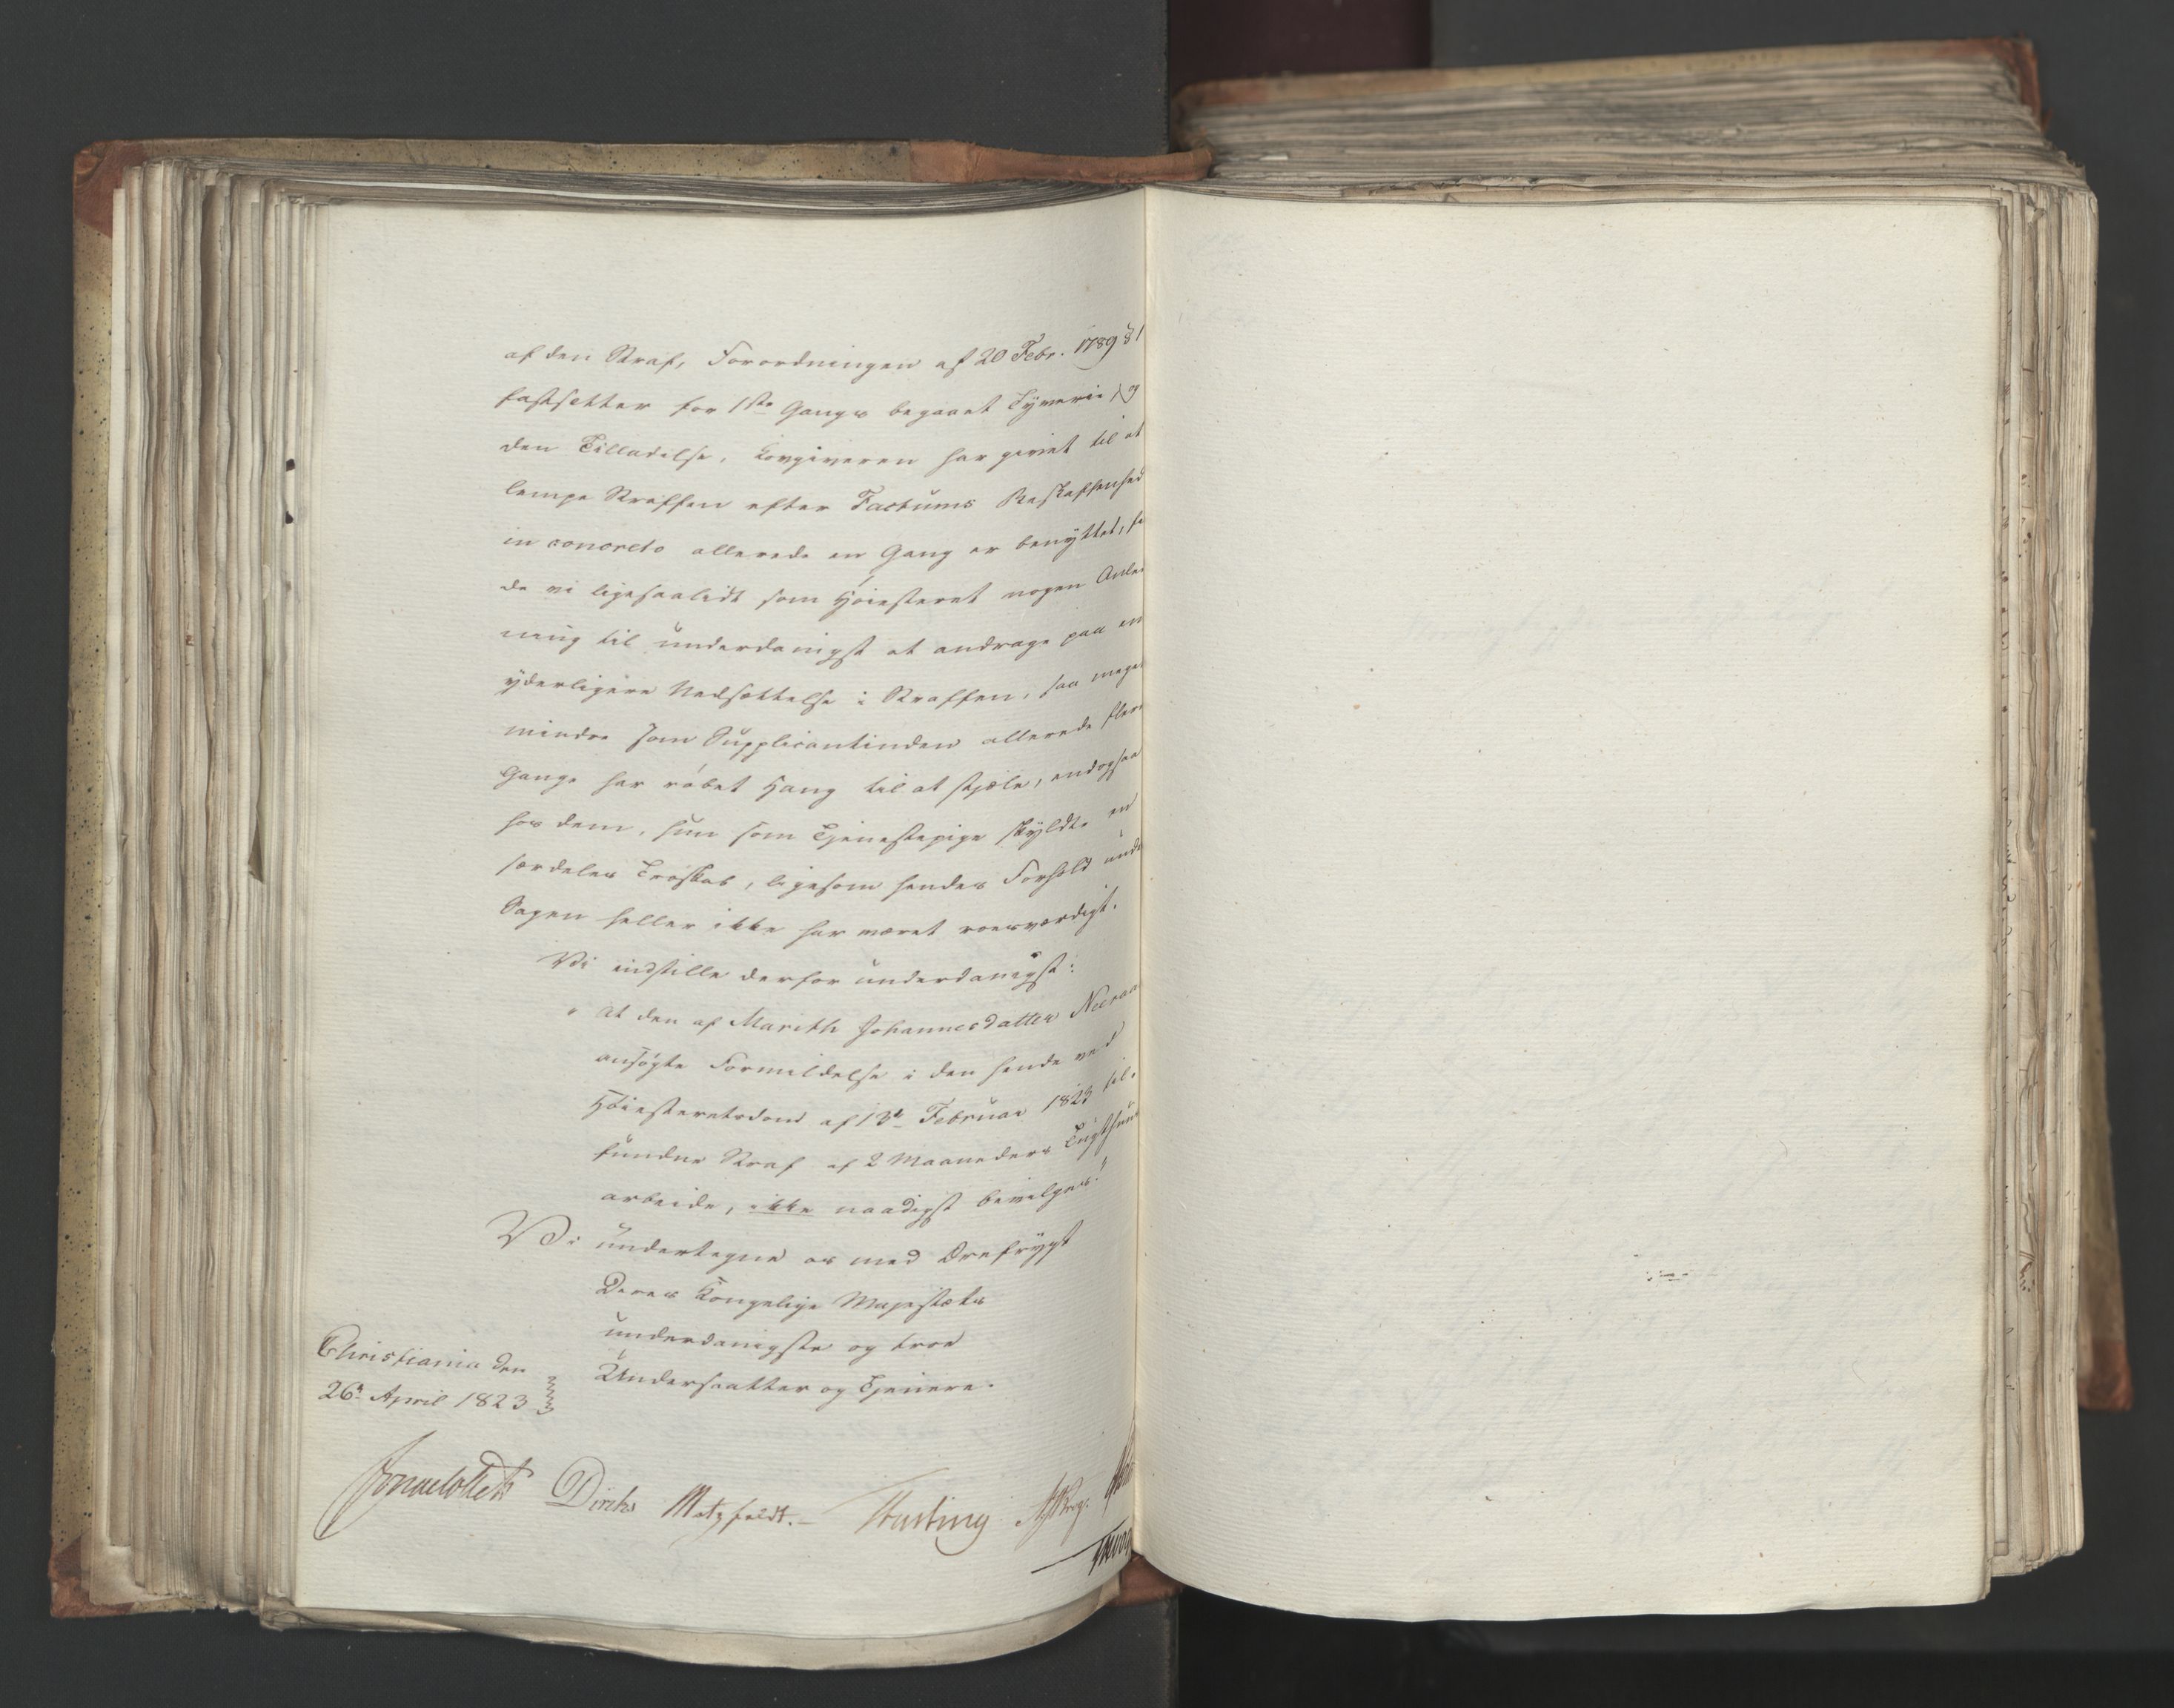 af den Straf, Forordningen af 20 Febr. 1789 § 1
fastsætter for 1ste Gangs begaaet Tyverie, og
den Tilladelse, Lovgiveren har givet til at
lempe Straffen efter Factums Beskaffenhed
in concreto allerede en Gang er benyttet, fin
de vi ligesaalidt som Høiesteret nogen Anled
ning til underdanigst at andrage paa en
yderligere Nedsættelse i Straffen, saa meget
mindre som Supplicantinden allerede flere
Gange har røbet Hang til at stjæle, endogsaa
hos dem, hun som Tjenestepige skyldte en
særdeles Troskab, ligesom hendes Forhold unde
Sagen heller ikke har været roesværdigt.
Vi indstille derfor underdanigst:
" At den af Marith Johannesdatter Neeraa
ansøgte Formildelse i den hende ved
Høiesteretsdom af 13de Februar 1823 til-
fundne Straf af 2 Maaneders Tugthuus
arbeide, ikke naadigst bevilges."
Vi undertegne os med Ærefrygt
Deres Kongelige Majestæts
underdanigste og troe
Undersaatter og Tjenere.
Christiania den
26de April 1823
Jonas Collett Diriks Motzfeldt. Fasting Krog.